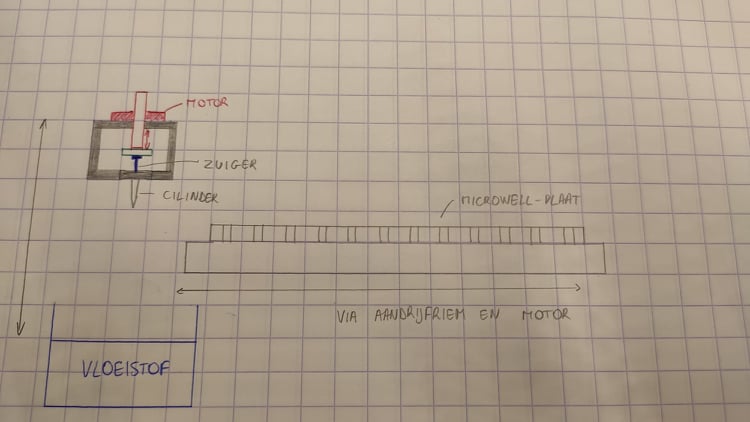 MOTOR
ZUIGER
CILINDER
MICROWELL-PLAAT
VIA AANDRIJFRIEM EN MOTOR
VLOEISTOF